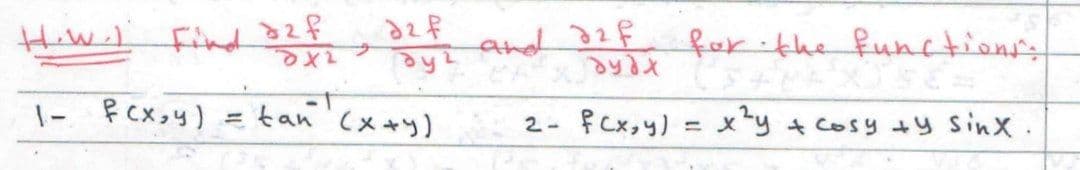 H.W.1 Find ∂2f/∂x2 , ∂2f/∂y2 and ∂2f/∂y∂x for the functions:
1- f(x,y) = tan⁻¹(x+y) 2- f(x,y) = x²y + cosy + y sinx .